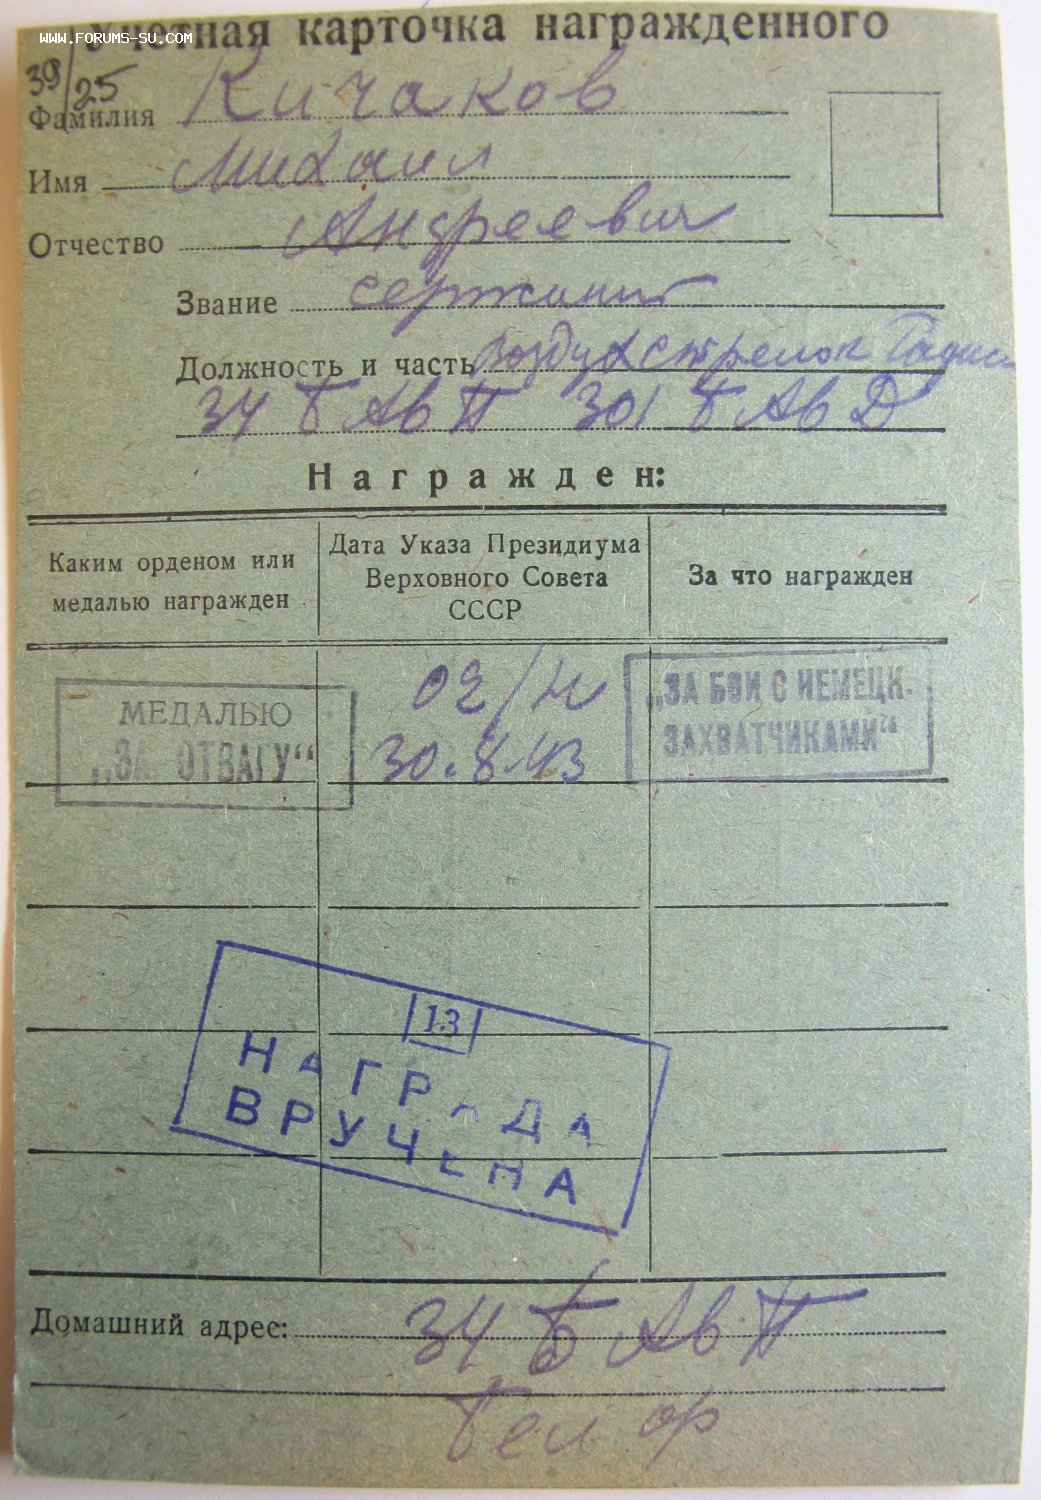 www.forums-su.com
Учетная карточка награжденного
39/25
Фамилия Кичаков
Имя Михаил
Отчество Андреевич
Звание сержант
Должность и часть Воздух стрелок Радист
34 БАвП 301 БАвД
Награжден:
Каким орденом или медалью награжден
Дата Указа Президиума Верховного Совета СССР
За что награжден
МЕДАЛЬЮ
„ЗА ОТВАГУ“
02/н
30.8.43
„ЗА БОИ С НЕМЕЦК.
ЗАХВАТЧИКАМИ“
13
НАГРАДА
ВРУЧЕНА
Домашний адрес: 34 БАвП